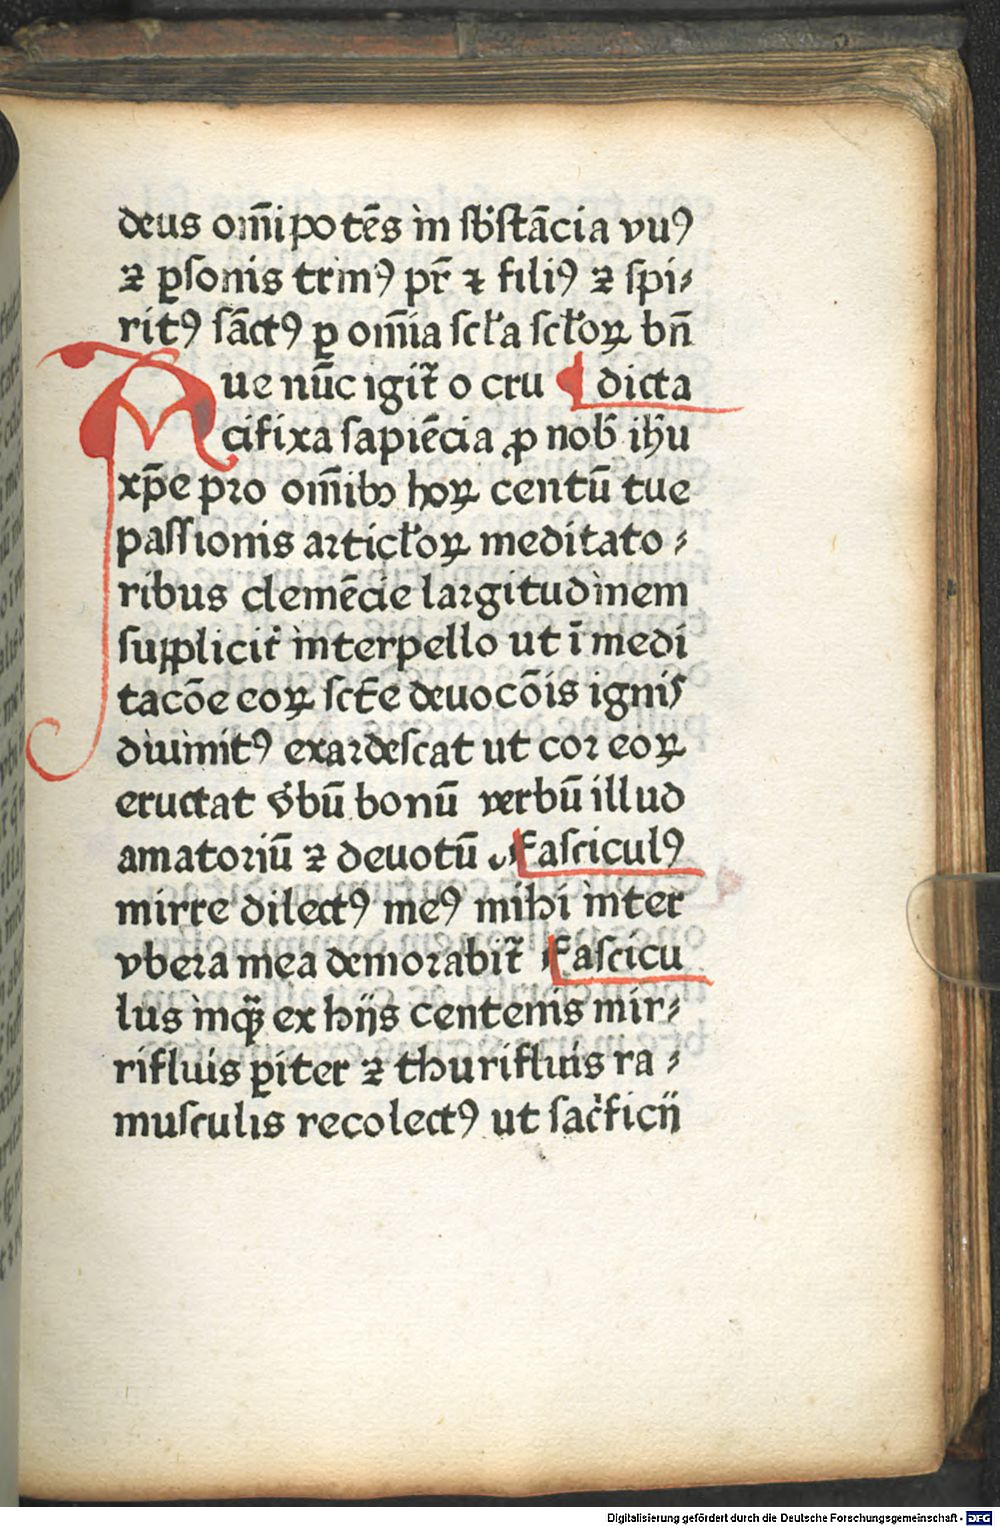 deus om̄ipotēs in sb̄stācia vnꝰ
⁊ ꝑsonis trinꝰ pr̄ ⁊ filiꝰ ⁊ spi-
ritꝰ sāctꝰ ꝑ om̄ia scl̄a scl̄oꝝ bn̄
Aue nūc igit̄ o cru ¶ dicta
cifixa sapiēcia ꝓ nob̄ ih̄u
xp̄e pro om̄ibꝫ hoꝝ centū tue
passionis articl̄oꝝ meditato-
ribus clemēcie largitudinem
suppliciť interpello ut ī medi
tacōe eoꝝ scē deuocōis ignis
diuinitꝰ exardescat ut cor eoꝝ
eructat v̄bū bonū verbū illud
amatoriū ⁊ deuotū Fasciculꝰ
mirre dilectꝰ meꝰ mihi inter
vbera mea demorabit̄ Fascicu
lus inqͣꝫ ex hijs centenis mir-
rifluis ꝑiter ⁊ thurifluis ra-
musculis recolectꝰ ut sac̄ficij
Digitalisierung gefördert durch die Deutsche Forschungsgemeinschaft - DFG